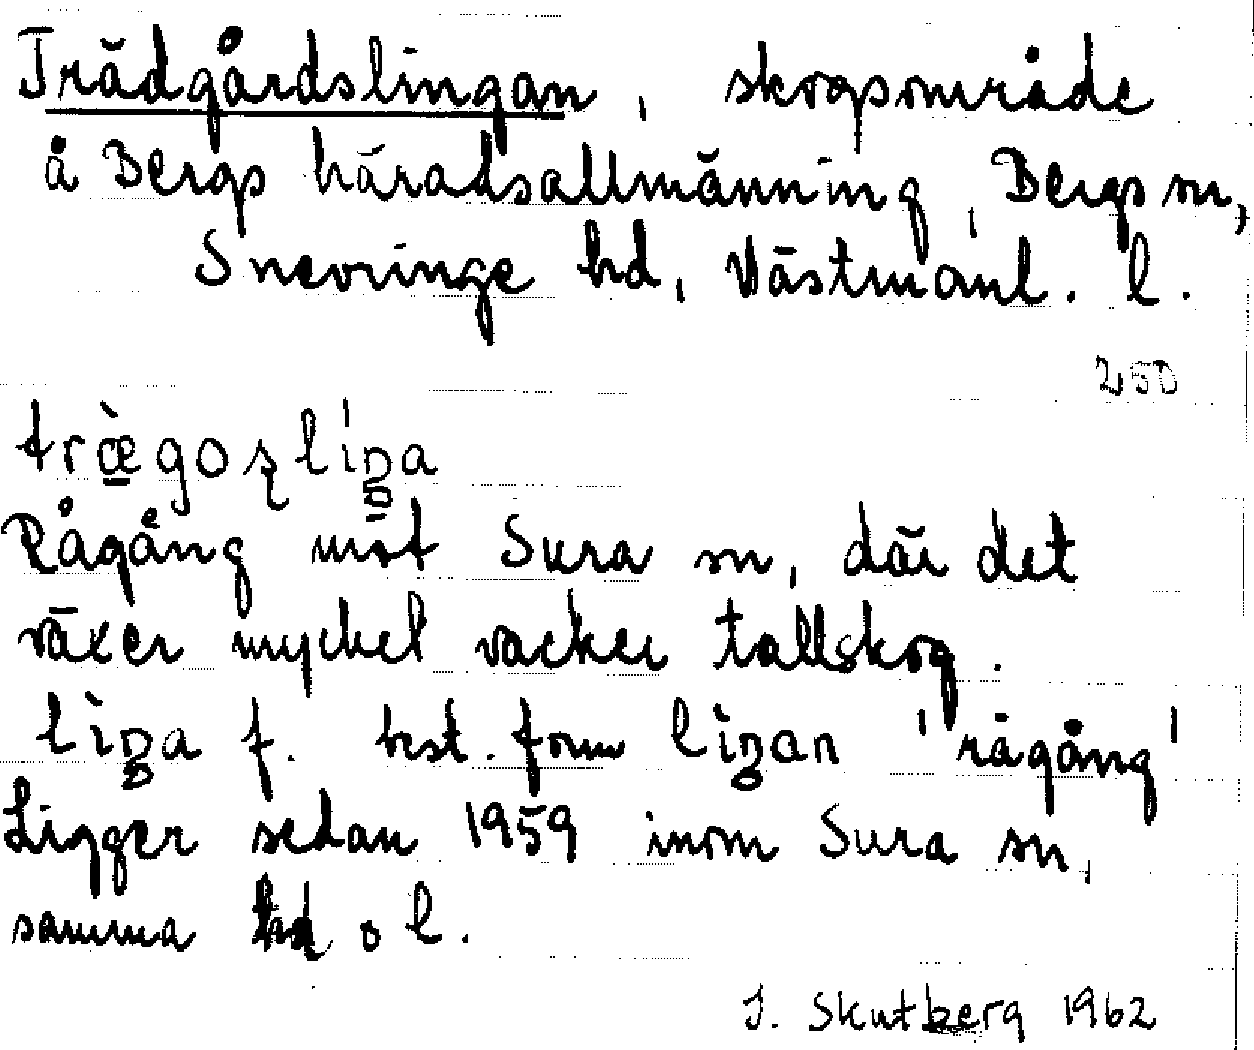 Trädgårdslingan, skogsområde
å Bergs häradsallmänning, Bergs sn,
Snevringe hd, Västmanl. l.
250
Rågång mot Sura sn, där det
växer mycket vacker tallskog.
f. best. form 'rågång'
Ligger sedan 1959 inom Sura sn,
samma hd o l.
J. Skutberg 1962